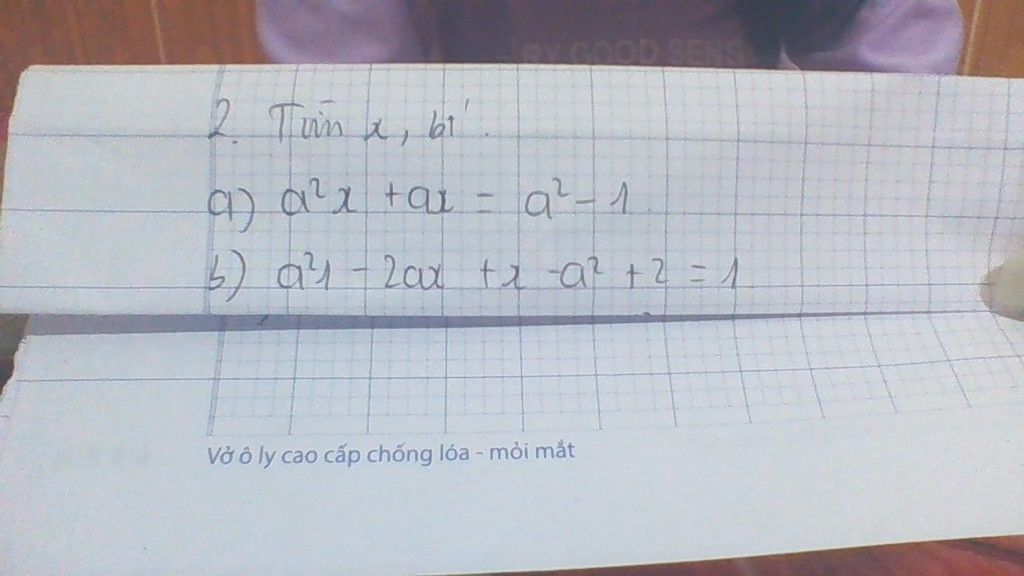 BY GOOD SENS
2. Tìm x, bt'.
a) a²x + ax = a² - 1
b) a²1 - 2ax + x - a² + 2 = 1
Vở ô ly cao cấp chống lóa - mỏi mắt